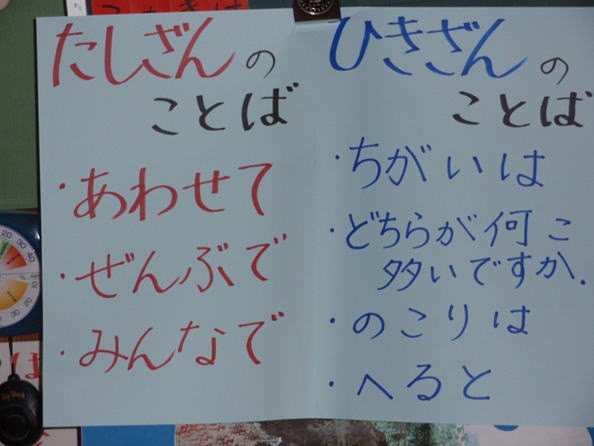 たしざんの
ことば
・あわせて
・ぜんぶで
・みんなで
ひきざんの
ことば
・ちがいは
・どちらが何こ
多いですか.
・のこりは
・へると